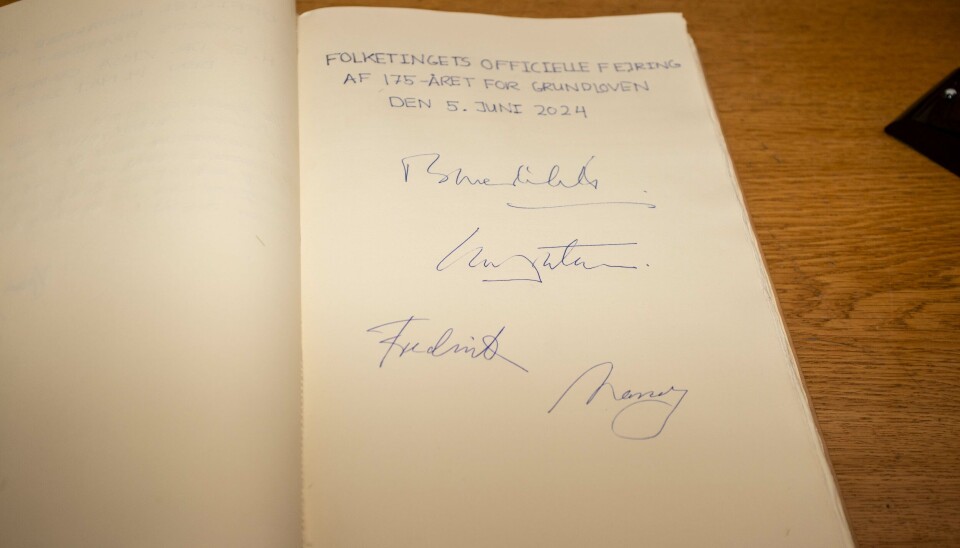 FOLKETINGETS OFFICIELLE FEJRING
AF 175-ÅRET FOR GRUNDLOVEN
DEN 5. JUNI 2024
Benedikte
Margrethe
Frederik
Mary